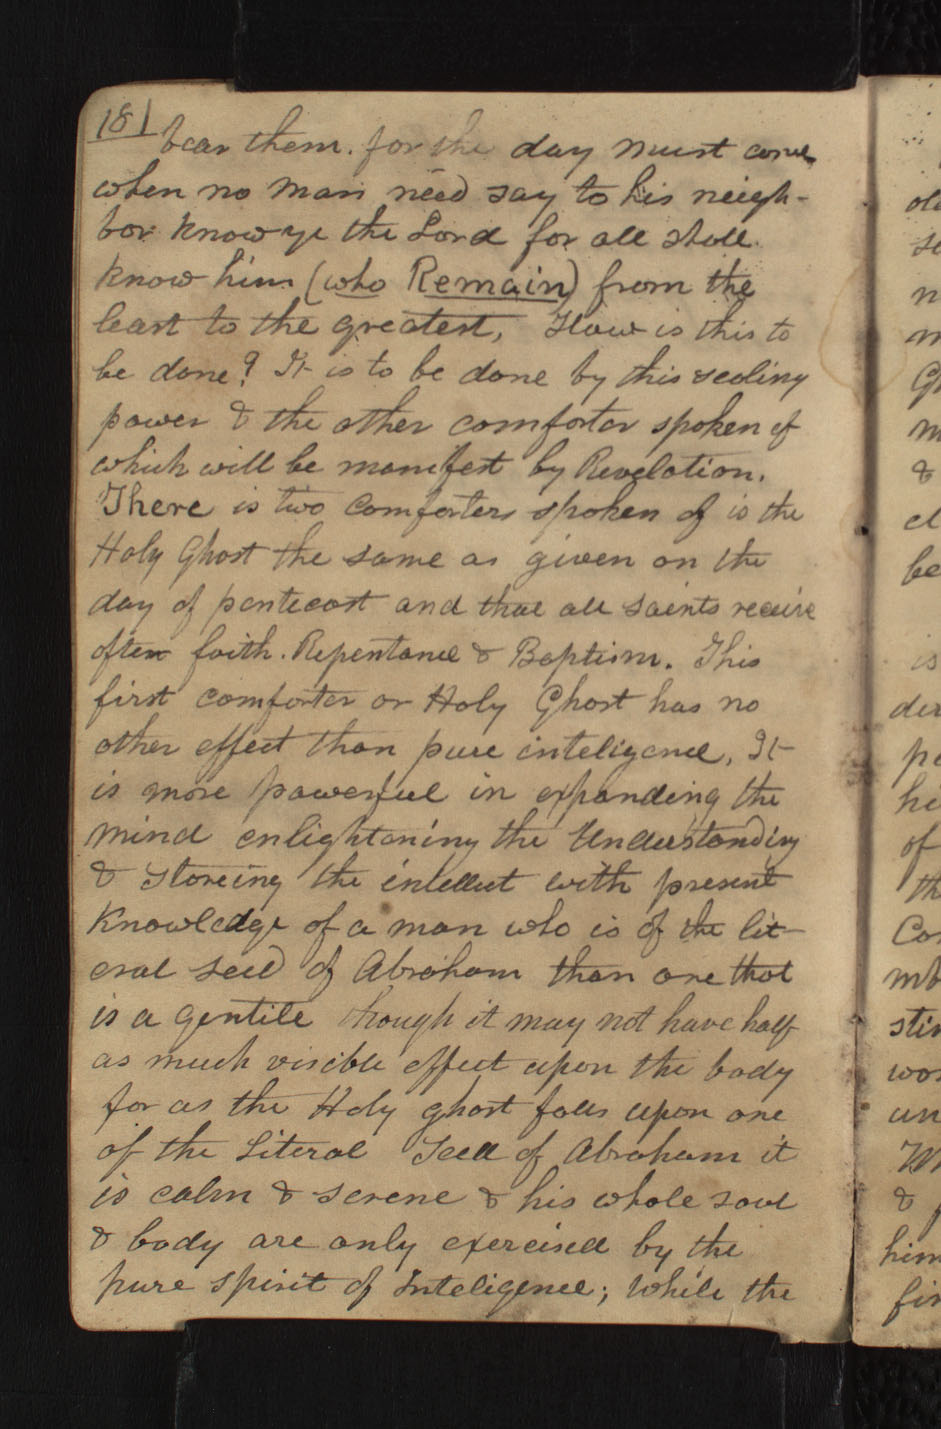 181
bear them. for the day must come
when no man need say to his neigh-
bor know ye the Lord for all shall
know him (who Remain) from the
least to the greatest, How is this to
be done? It is to be done by this sealing
power & the other comforter spoken of
which will be manifest by Revelation.
There is two comforters spoken of is the
Holy Ghost the same as given on the
day of pentecost and that all saints receive
after faith. Repentance & Baptism. This
first comforter or Holy Ghost has no
other effect than pure inteligence, It
is more powerful in expanding the
mind enlightening the Understanding
& storeing the intellect with present
Knowledge of a man who is of the lit-
eral seed of Abraham than one that
is a gentile though it may not have half
as much visible effect upon the body
for as the Holy ghost falls upon one
of the Literal Seed of Abraham it
is calm & serene & his whole soul
& body are only exercised by the
pure spirit of Inteligence; while the